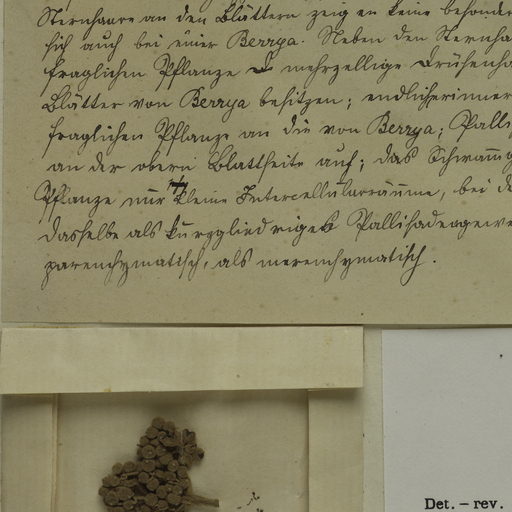 Sternhaare an den Blättern zeigen keine besonder
sich auch bei einer Berrya. Neben den Sternha
fraglichen Pflanze mehrzellige Drüsenha
Blätter von Berrya besitzen; endlich erinner
fraglichen Pflanze an die von Berrya; Palli
an der oberen Blattseite auf; das Schwamm
Pflanze nur kleine Intercellularräume, bei de
dasselbe als kurzgliedriges Pallisadengewe
parenchymatisch, als merenchymatisch.
Det. – rev.